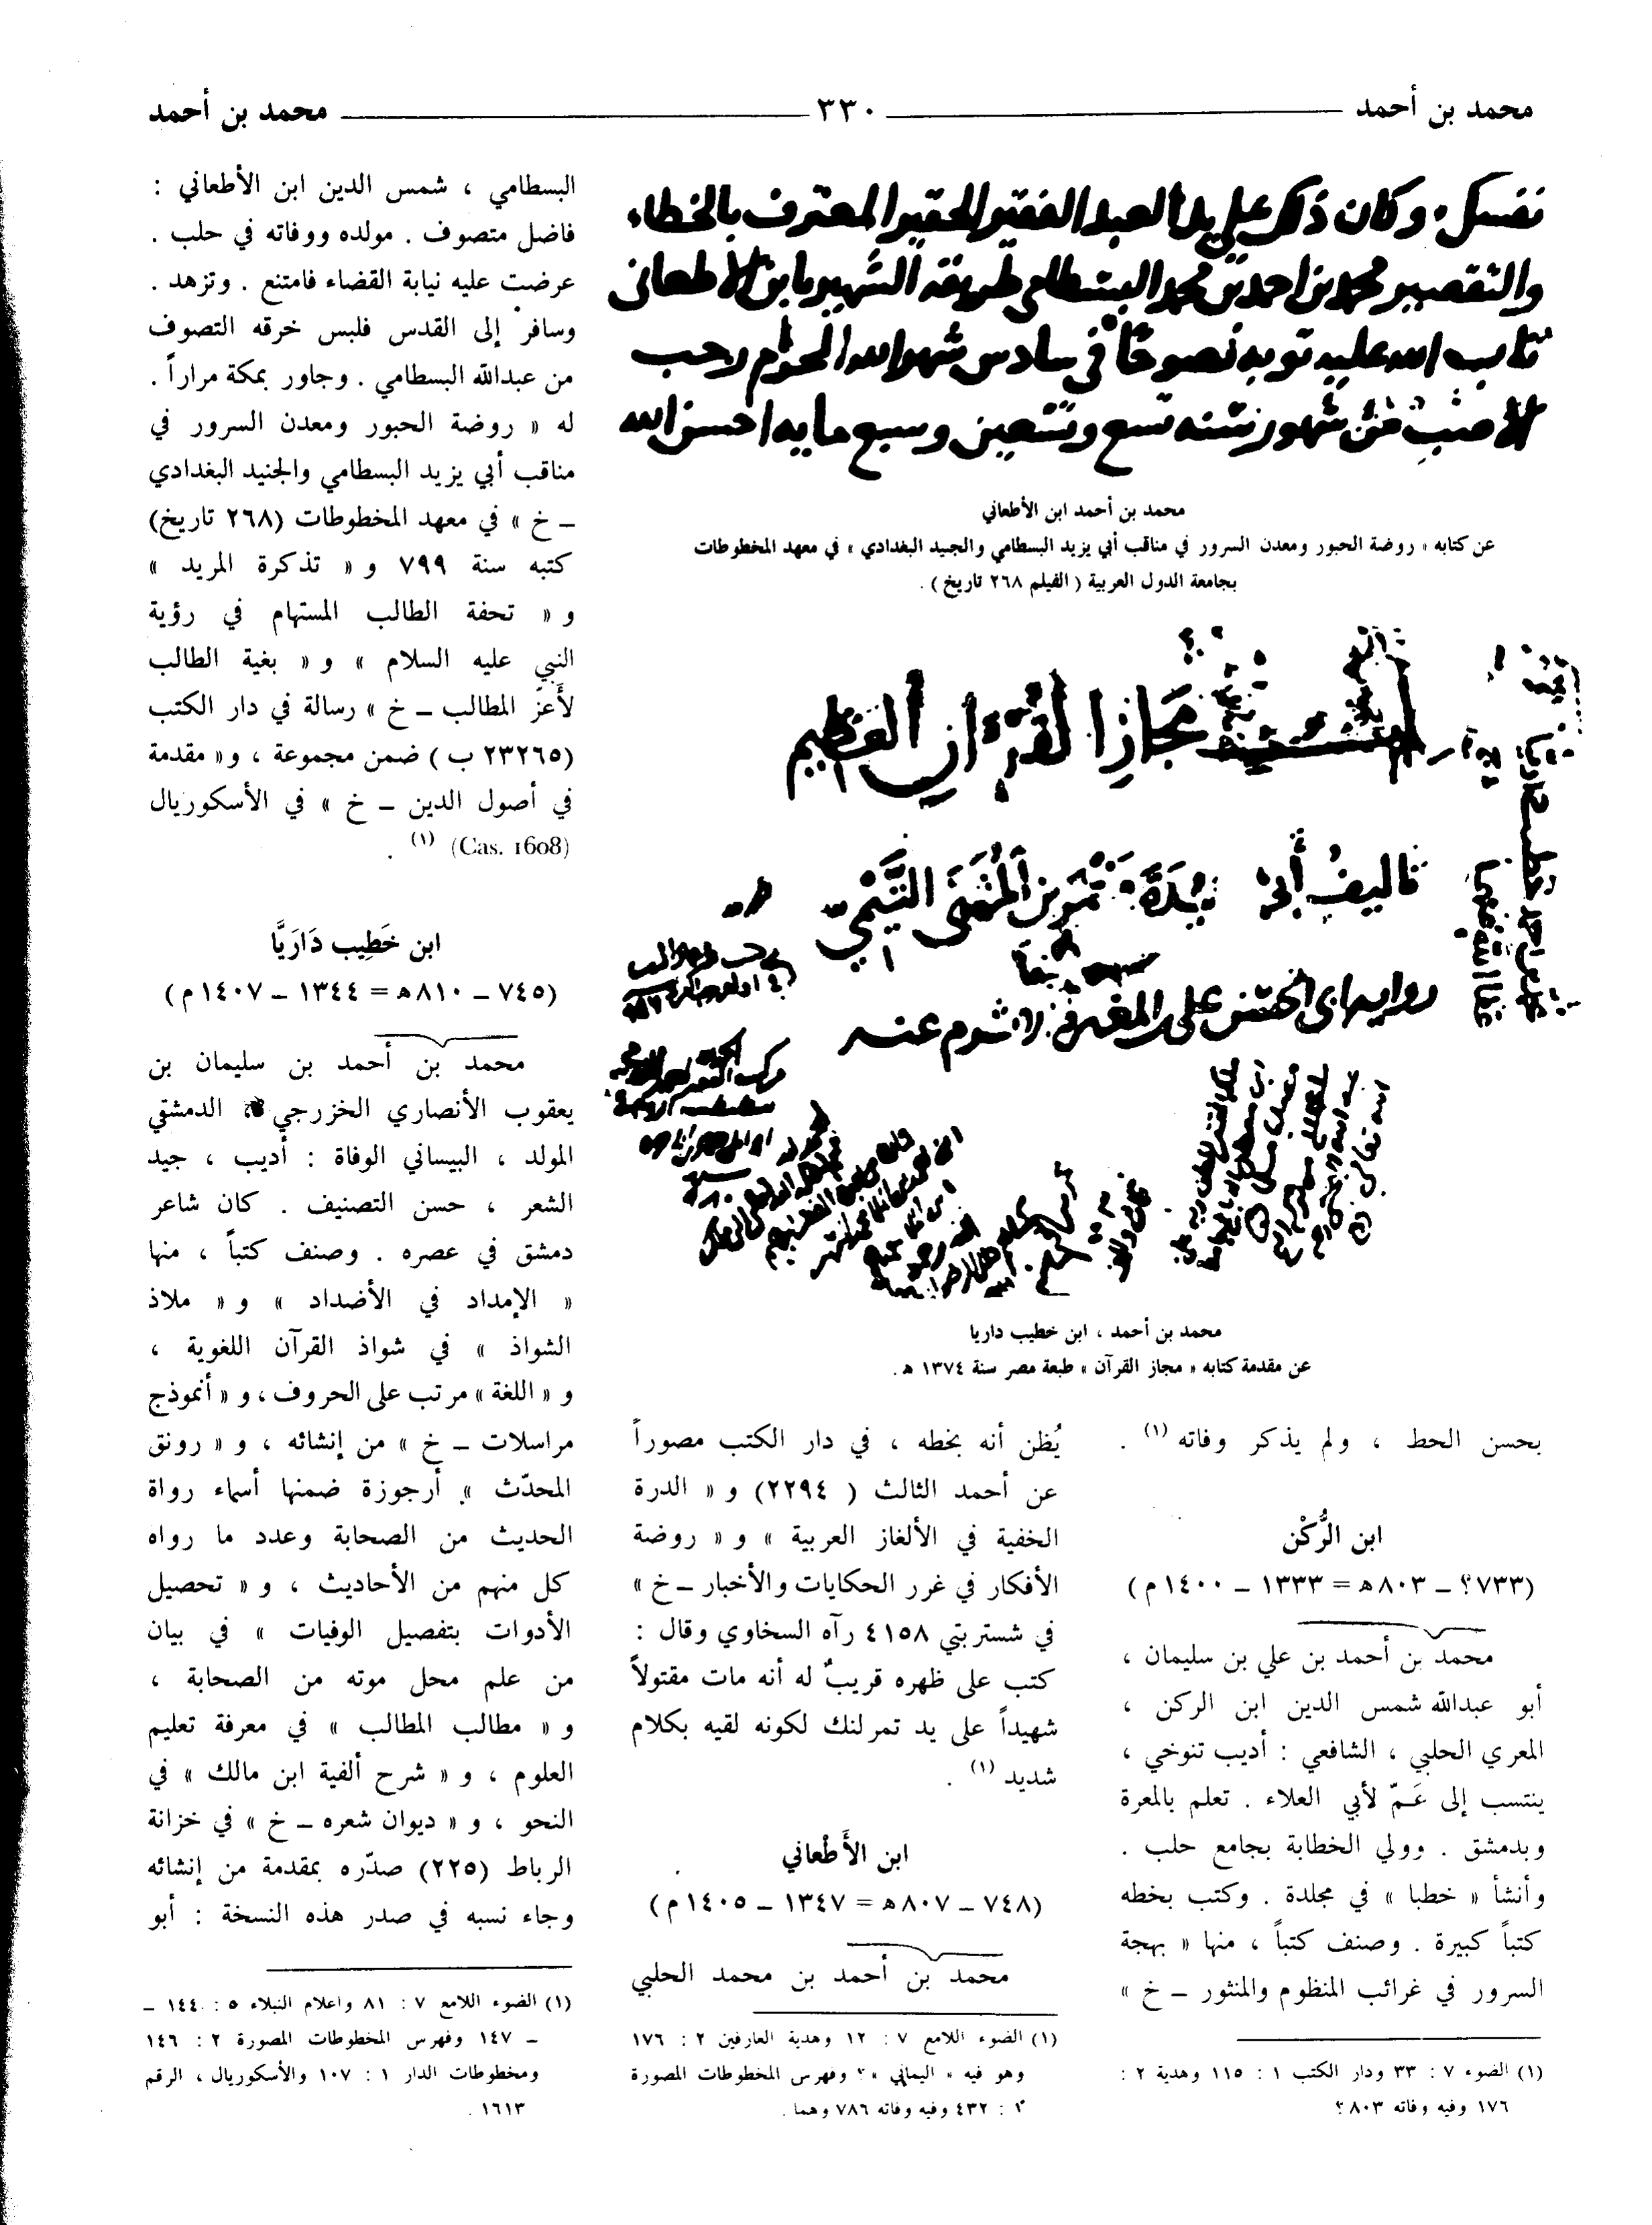 محمد بن أحمد ٣٣٠ محمد بن أحمد
نفسك، وكان ذكر على يد العبد الفقير الحقير المعترف بالخطاء
والتقصير محمد بن احمد بن محمد البسطامي طريقة الشهير بابن الاطعاني
تاب الله عليه توبة نصوحاً في سادس شهر الله الحرام رجب
الأصب من شهور سنة تسع وتسعين وسبع مايه احسن الله
محمد بن أحمد ابن الأطعاني
عن كتابه « روضة الحبور ومعدن السرور في مناقب أبي يزيد البسطامي والجنيد البغدادي » في معهد المخطوطات
بجامعة الدول العربية ( الفيلم ٢٦٨ تاريخ ) .
مجاز القرآن العظيم
تاليف أبي عبيدة معمر بن المثنى التيمي
رواية أبي الحسن علي بن المغيرة الاثرم عنه
محمد بن أحمد ، ابن خطيب داريا
عن مقدمة كتابه « مجاز القرآن » طبعة مصر سنة ١٣٧٤ هـ .
بحسن الخط ، ولم يذكر وفاته (١) .
ابن الرُّكْن
(٧٣٣؟ ــ ٨٠٣هـ = ١٣٣٣ ــ ١٤٠٠م)
محمد بن أحمد بن علي بن سليمان ،
أبو عبدالله شمس الدين ابن الركن ،
المعري الحلبي ، الشافعي : أديب تنوخي ،
ينتسب إلى عَمّ لأبي العلاء . تعلم بالمعرة
وبدمشق . وولي الخطابة بجامع حلب .
وأنشأ « خطبا » في مجلدة . وكتب بخطه
كتباً كبيرة . وصنف كتباً ، منها « بهجة
السرور في غرائب المنظوم والمنثور ــ خ »
(١) الضوء ٧ : ٣٣ ودار الكتب ١ : ١١٥ وهدية ٢ :
١٧٦ وفيه وفاته ٨٠٣ ؟
يُظن أنه بخطه ، في دار الكتب مصوراً
عن أحمد الثالث ( ٢٢٩٤) و « الدرة
الخفية في الألغاز العربية » و « روضة
الأفكار في غرر الحكايات والأخبار ــ خ »
في شستربتي ٤١٥٨ رآه السخاوي وقال :
كتب على ظهره قريبٌ له أنه مات مقتولاً
شهيداً على يد تمرلنك لكونه لقيه بكلام
شديد (١) .
ابن الأَطْعاني
(٧٤٨ ــ ٨٠٧هـ = ١٣٤٧ ــ ١٤٠٥م)
محمد بن أحمد بن محمد الحلبي
(١) الضوء اللامع ٧ : ١٢ وهدية العارفين ٢ : ١٧٦
وهو فيه « اليماني »؟ وفهرس المخطوطات المصورة
٢ : ٤٣٢ وفيه وفاته ٧٨٦ وهما .
البسطامي ، شمس الدين ابن الأطعاني :
فاضل متصوف . مولده ووفاته في حلب .
عرضت عليه نيابة القضاء فامتنع . وتزهد .
وسافر إلى القدس فلبس خرقه التصوف
من عبدالله البسطامي . وجاور بمكة مراراً .
له « روضة الحبور ومعدن السرور في
مناقب أبي يزيد البسطامي والجنيد البغدادي
ــ خ » في معهد المخطوطات (٢٦٨ تاريخ)
كتبه سنة ٧٩٩ و « تذكرة المريد »
و « تحفة الطالب المستهام في رؤية
النبي عليه السلام » و « بغية الطالب
لأَعزّ المطالب ــ خ » رسالة في دار الكتب
(٢٣٢٦٥ ب ) ضمن مجموعة ، و« مقدمة
في أصول الدين ــ خ » في الأسكوريال
(Cas. 1608) (١) .
ابن خَطِيب دَارَيَّا
(٧٤٥ ــ ٨١٠هـ = ١٣٤٤ ــ ١٤٠٧م)
محمد بن أحمد بن سليمان بن
يعقوب الأنصاري الخزرجي ، الدمشقي
المولد ، البيساني الوفاة : أديب ، جيد
الشعر ، حسن التصنيف . كان شاعر
دمشق في عصره . وصنف كتباً ، منها
« الإمداد في الأضداد » و « ملاذ
الشواذ » في شواذ القرآن اللغوية ،
و « اللغة » مرتب على الحروف ، و « أنموذج
مراسلات ــ خ » من إنشائه ، و « رونق
المحدّث » أرجوزة ضمنها أسماء رواة
الحديث من الصحابة وعدد ما رواه
كل منهم من الأحاديث ، و « تحصيل
الأدوات بتفصيل الوفيات » في بيان
من علم محل موته من الصحابة ،
و « مطالب المطالب » في معرفة تعليم
العلوم ، و « شرح ألفية ابن مالك » في
النحو ، و « ديوان شعره ــ خ » في خزانة
الرباط (٢٢٥) صدّره بمقدمة من إنشائه
وجاء نسبه في صدر هذه النسخة : أبو
(١) الضوء اللامع ٧ : ٨١ واعلام النبلاء ٥ : ١٤٤ ــ
ــ ١٤٧ وفهرس المخطوطات المصورة ٢ : ١٤٦
ومخطوطات الدار ١ : ١٠٧ والأسكوريال ، الرقم
١٦١٣ .